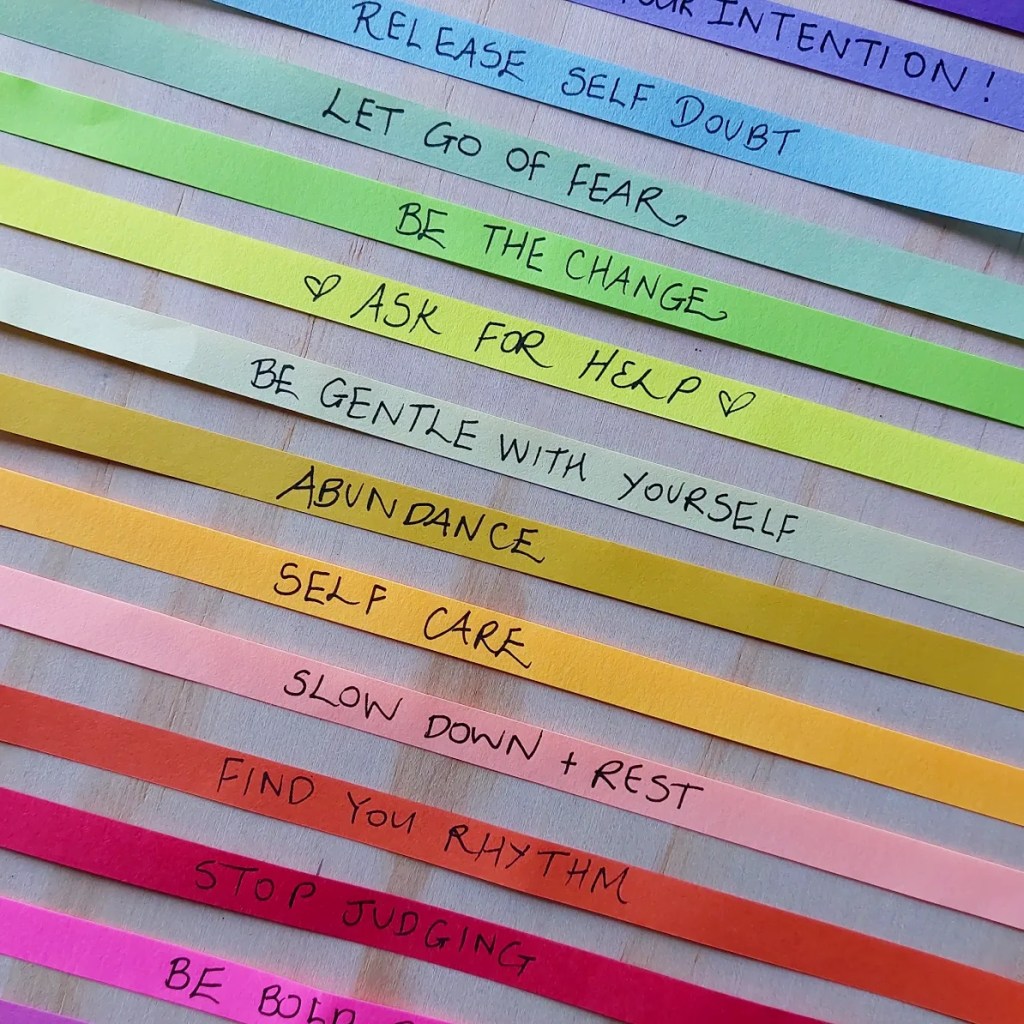 INTENTION!
RELEASE SELF DOUBT
LET GO OF FEAR
BE THE CHANGE
♡ ASK FOR HELP ♡
BE GENTLE WITH YOURSELF
ABUNDANCE
SELF CARE
SLOW DOWN + REST
FIND YOU RHYTHM
STOP JUDGING
BE BOLD